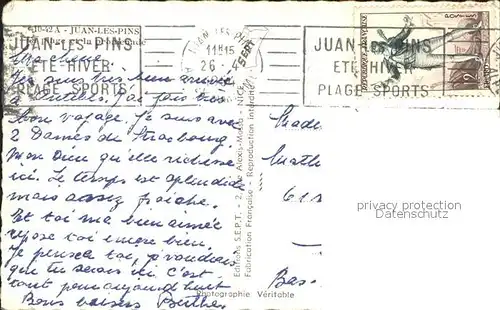 10-42 A - JUAN-LES-PINS
JUAN-LES-PINS
11H15
26-4
JUAN-LES PINS
ETE HIVER
PLAGE SPORTS
JUAN-LES PINS
ETE HIVER
PLAGE SPORTS
Je suis très bien arrivée
à Antibes. J'ai fais très
bon voyage. Je suis avec
2 Dames de Strasbourg.
Mon Dieu qu'elle richesse
ici. Le temps est splendide
mais assez fraiche.
Et toi ma bien aimée
repose toi encore bien.
Je pense à toi, je voudrais
que tu serais ici. C'est
tout pour aujourd'huit
Bons baisers Berthe.
Editions S.E.P.T. - 2, rue Alexis-Mossa - NICE
Fabrication Française - Reproduction interdite
Photographie Véritable
61
Bas-
privacy protection
Datenschutz